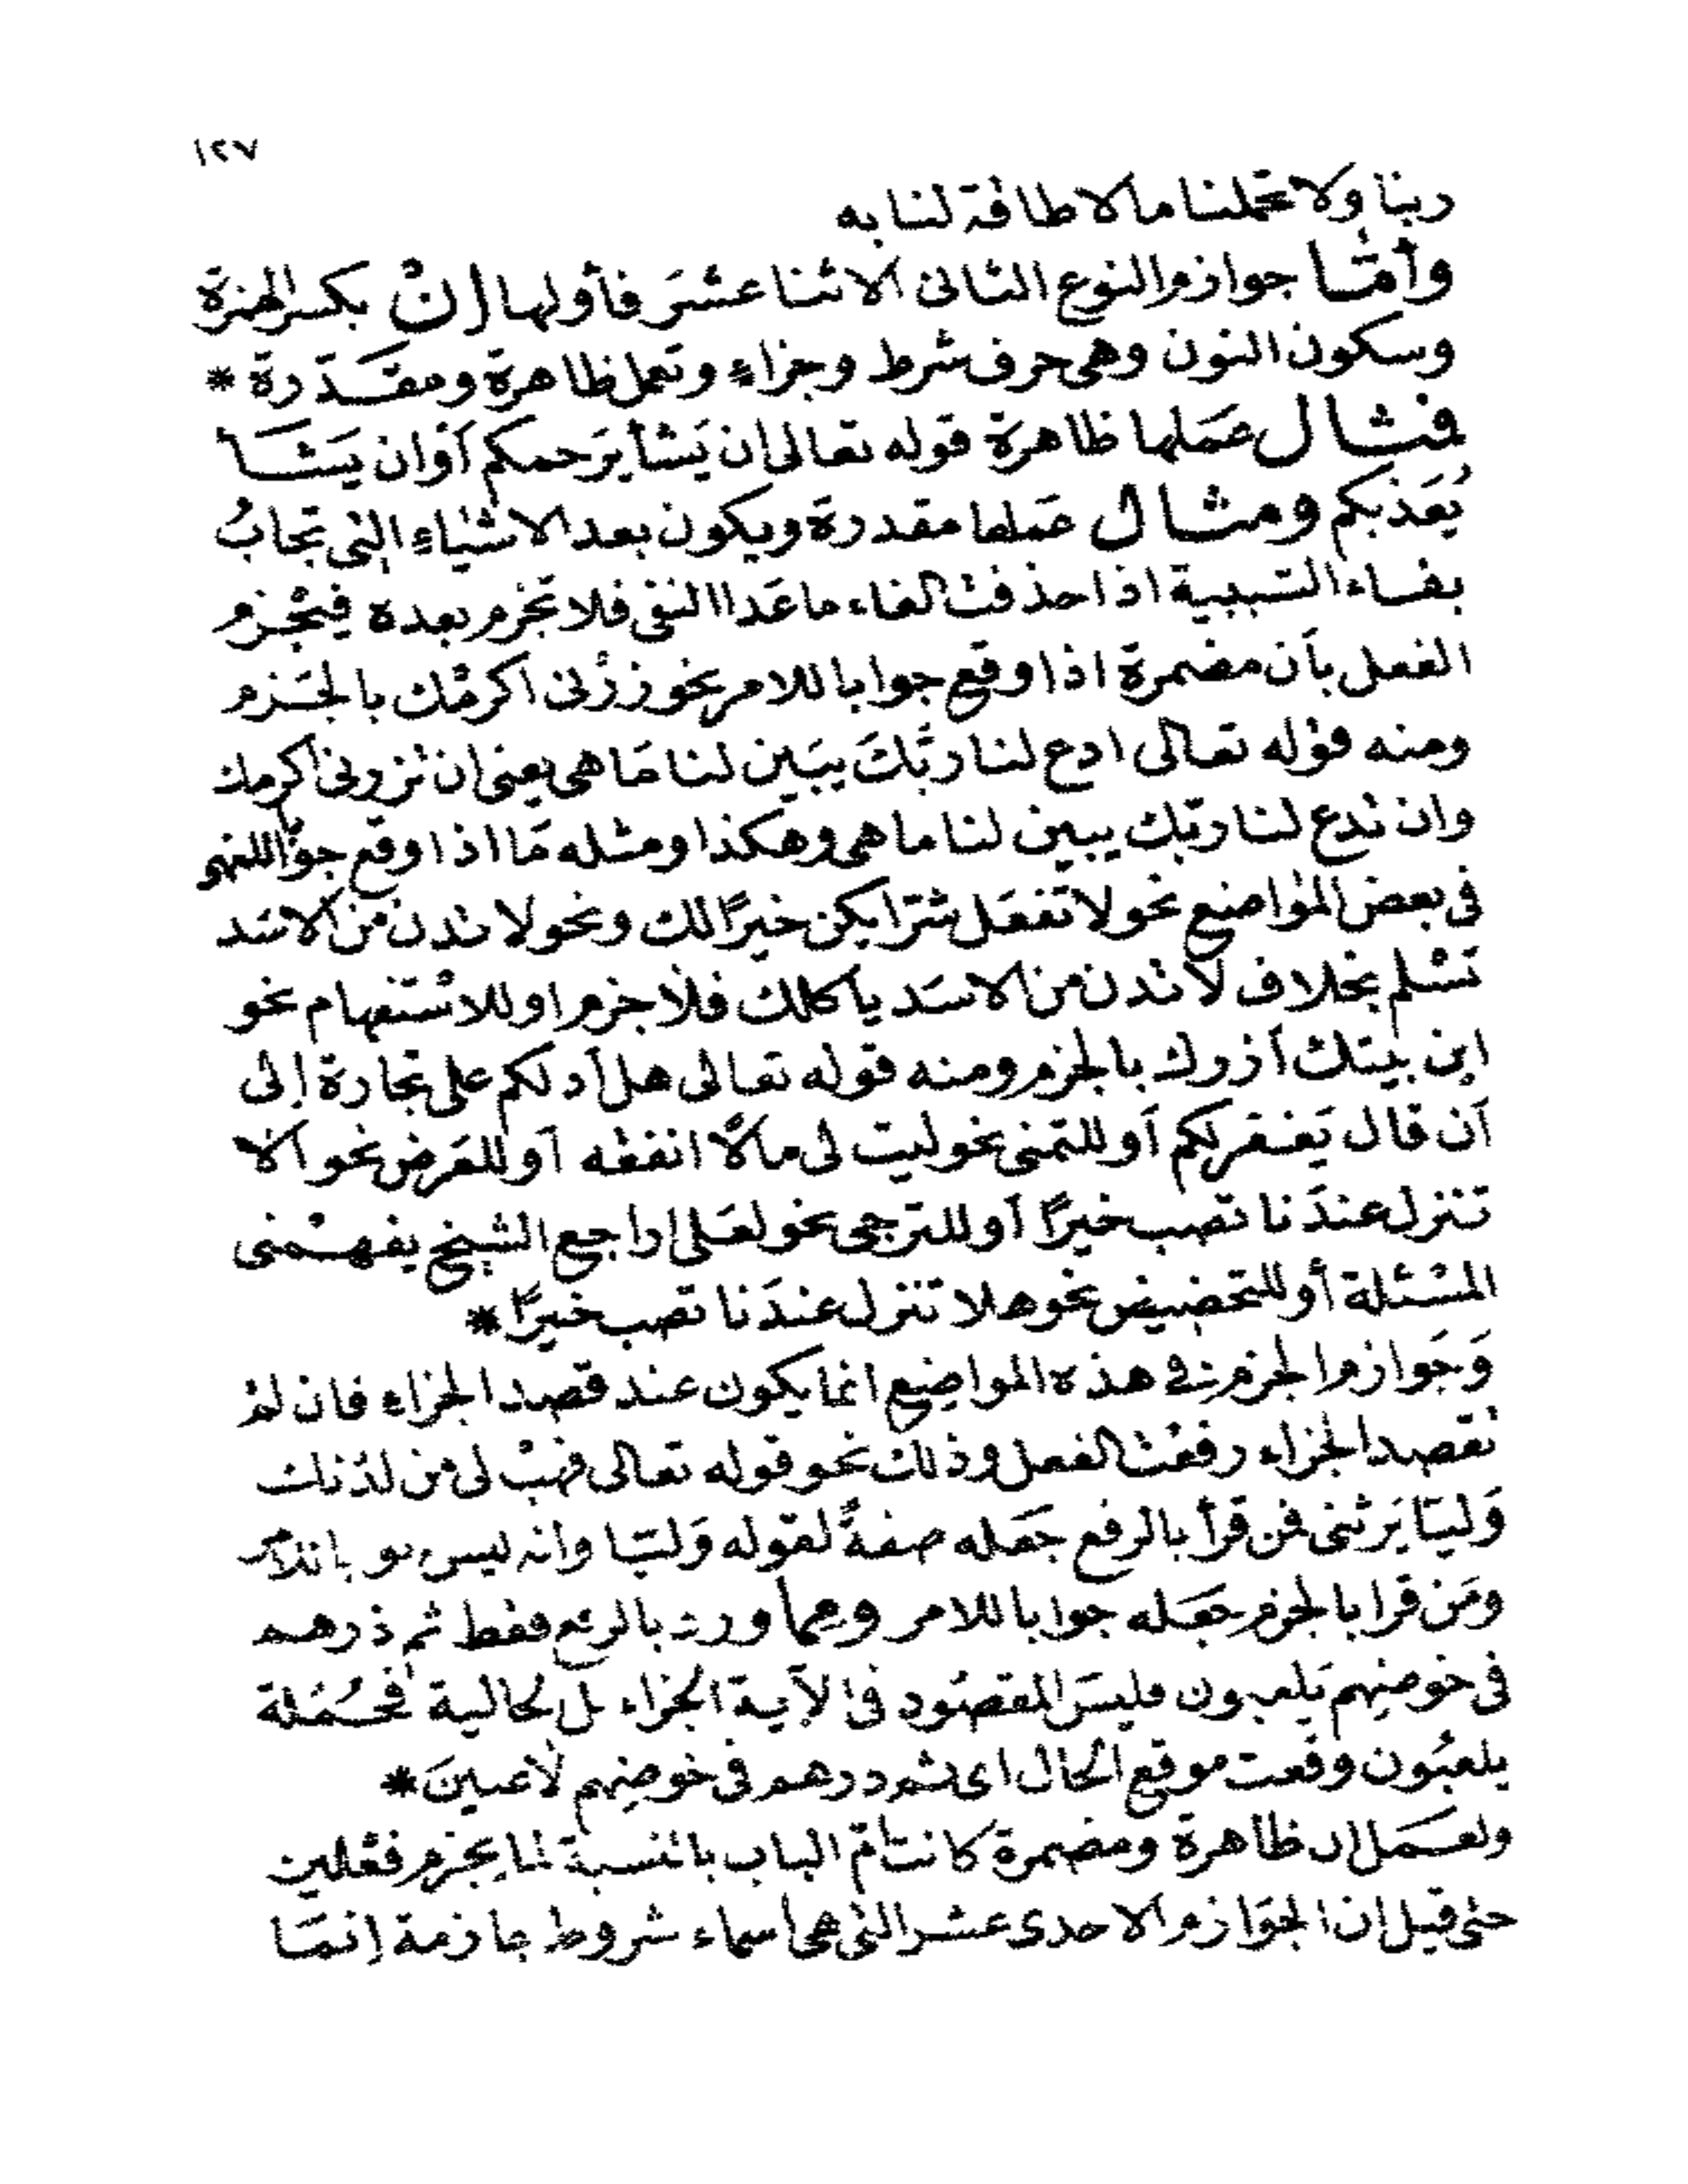 ١٢٧
ربنا ولا تحملنا مالا طاقة لنا به
وأمّا جوازم النوع الثانى الاثنا عشرَ فأولها إنْ بكسر الهمزة
وسكون النون وهى حرف شرط وجزاءٍ وتعمل ظاهرة ومقدّرة *
فمثال عمَلها ظاهرة قوله تعالى إن يَشأ يَرحمكم أوان يَشَأ
يُعَذبكم ومثال عمَلها مقدرة ويكون بعد الاشياءِ التى تجابُ
بفاء السّببية اذا حذفت الفاء ما عَدا النفى فلا تجزم بعده فيُجْزم
الفعل بأن مضمرة اذا وقع جوابا للامر نحو زرْنى اكرمْك بالجَزم
ومنه قوله تعالى ادع لنا ربَّكَ يبَين لنا مَا هى يعنى ان تزرونى اكرمك
وان تدع لنا ربّك يبين لنا ما هى وهكذا ومثله مَا اذا وقع جوابًا للنهى
فى بعض المواضع نحو لا تفعَل شرّا يكن خيرًا لك ونحو لا تدن من الاسَد
تسْلم بخلاف لا تدن من الاسَد ياكلك فلا جزم او للاسْتفهام نحو
اين بيتك أزرك بالجزم ومنه قوله تعالى هل أدلكم على تجارة إلى
أن قال يَغفر لكم أو للتمنى نحو ليت لى مالًا انفقه أو للعَرض نحو ألا
تنزل عندَنا تصب خيرًا أو للترجى نحو لعَلى اراجع الشيخ يفهمْنى
المسْئلة أو للتحضيض نحو هلا تنزل عندَنا تصب خيرًا *
وَجَوازم الجزم فى هذه المواضِع انما يكون عند قصد الجزاء فان لمْ
تقصد الجزاء رفعْت الفعل وذلك نحو قوله تعالى فهبْ لى من لدْنك
وَليّا يَرثنى فمن قرأ بالرفع جعَله صفةً لقوله وَليّا وانه ليس
ومَن قرا بالجزم جعَله جوابا للامر ومما ورد بالرفع فقط ثم ذرهم
فى خوضِهم يَلعبون فليسَ المقصُود فى الآية الجزاء بل الحالية فجُمْلة
يلعبُون وقعت موقع الحال اى ثم ذرهم فى خوضِهم لاعبينَ *
ولعمَل ان ظاهرة ومضمرة كانت أمّ الباب بالنسبة لما يجزم فعْلين
حتى قيل ان الجوَازم الاحدى عشر التى هى أسماء شروط جازمة إنمَا